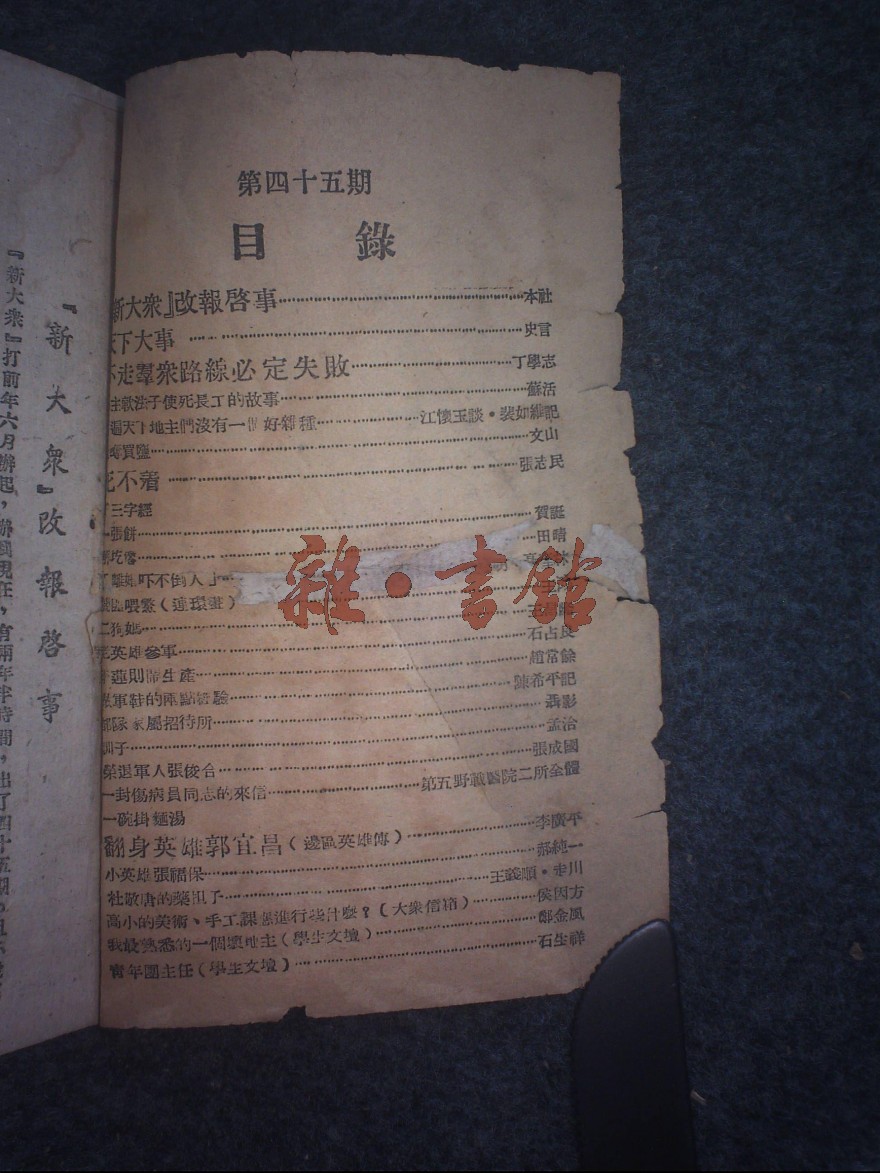 第四十五期
目錄
新大衆』改報啓事 本社
下大事 史言
走羣衆路線必定失敗 丁學志
使死長工的故事 蘇活
天下地主們沒有一個好雜種 江懷玉談・裴如維記
買鹽 文山
死不着 張志民
三字經
張餅 賀誕
田晴
吓不倒人
(連環畫)
二狗媽
英雄參軍 石占良
生產 趙常餘
軍鞋的兩點經驗 陳希平記
部隊家屬招待所 聶影
子 孟治
榮退軍人張俊合 張成國
一封傷病員同志的來信 第五野戰醫院二所全體
一碗掛麵湯
翻身英雄郭宜昌(邊區英雄傳) 李廣平
小英雄張福保 郝純一
杜敬唐的藥 王義順・
高小的美術、手工課 進行些什麽?(大衆信箱) 侯因方
我最熟悉的一個壞地主(學生文壇) 鄭金風
青年團主任(學生文壇) 石生祥
『新大衆』改報啓事
『新大衆』打前年六月辦起,辦到現在,有兩年半時間,出了四十五期。
雜・書館